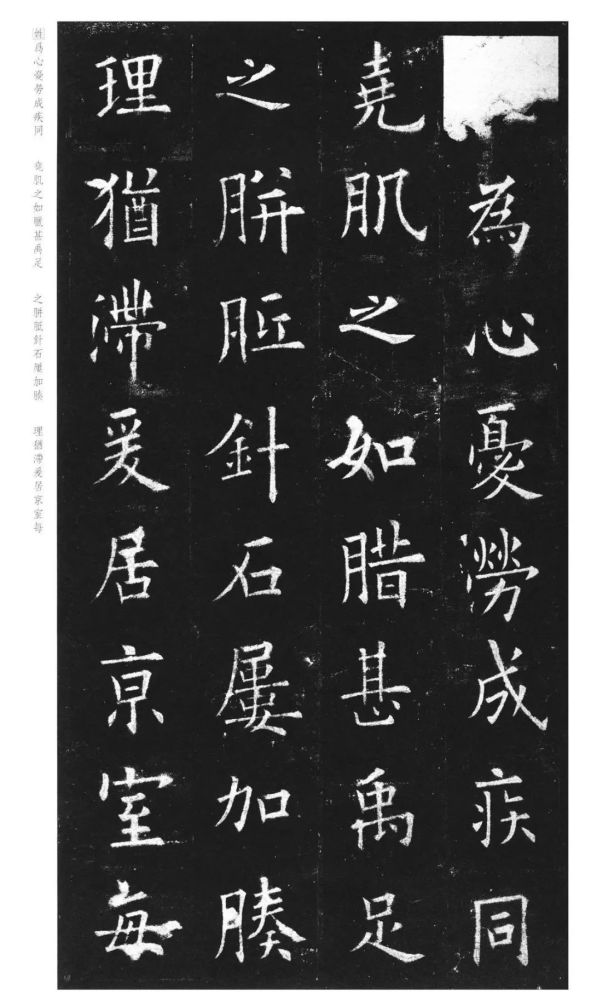 為心憂勞成疾同
堯肌之如腊甚禹足
之胼胝針石屢加腠
理猶滯爰居京室每
姓爲心憂勞成疾同　堯肌之如臘甚禹足　之胼胝針石屢加腠　理猶滯爰居京室每